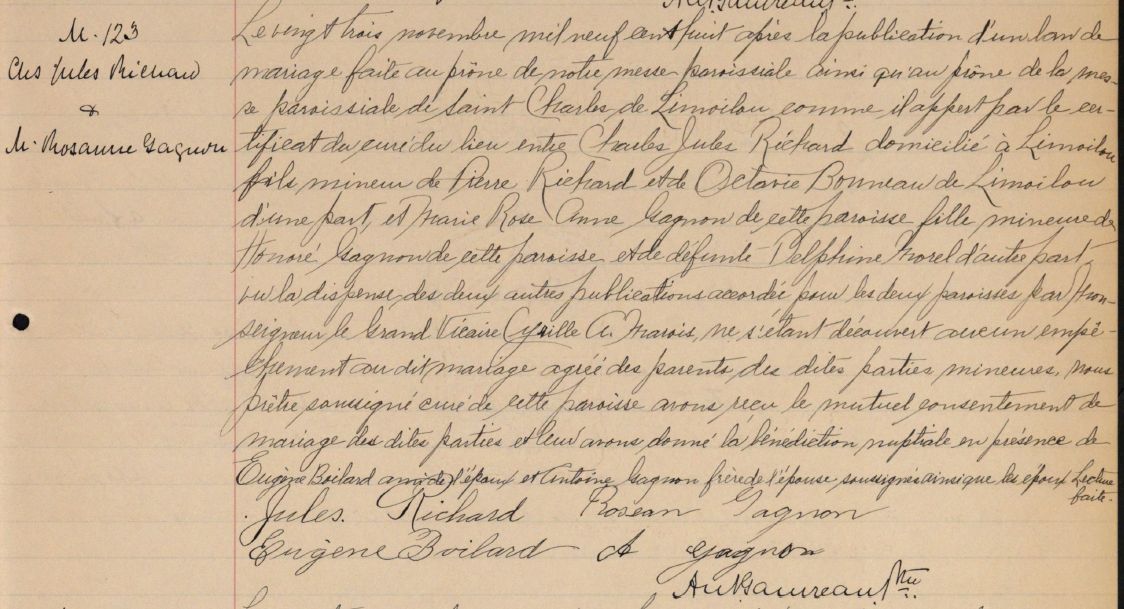 M. 123
Chs Jules Richard
&
M. Rosanne Gagnon
Le vingt trois novembre mil neuf cent huit après la publication d'un ban de
mariage faite au prône de notre messe paroissiale ainsi qu'au prône de la mes-
se paroissiale de Saint Charles de Limoilou comme il appert par le cer-
tificat du curé du lieu entre Charles Jules Richard domicilié à Limoilou
fils mineur de Pierre Richard et de Octavie Bonneau de Limoilou
d'une part, et Marie Rose Anne Gagnon de cette paroisse fille mineure de
Honoré Gagnon de cette paroisse et de défunte Delphine Morel d'autre part,
vu la dispense des deux autres publications accordée pour les deux paroisses par Mon-
seigneur le Grand Vicaire Cyrille A. Marois, ne s'étant découvert aucun empê-
chement au dit mariage agréé des parents des dites parties mineures, nous
prêtre soussigné curé de cette paroisse avons reçu le mutuel consentement de
mariage des dites parties et leur avons donné la bénédiction nuptiale en présence de
Eugène Boilard ami de l'époux et Antoine Gagnon frère de l'épouse soussignés ainsi que les époux Lecture
faite.
Jules. Richard Rosean Gagnon
Eugène Boilard A gagnon
Ptre